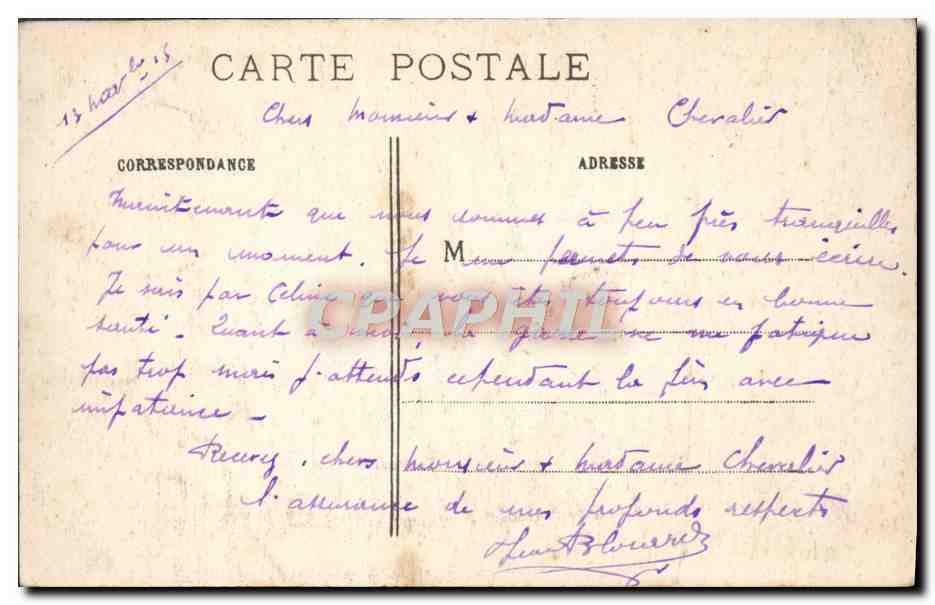 13 nov bre 15
CARTE POSTALE
Chers Monsieur & Madame Chevalier
CORRESPONDANCE
ADRESSE
Maintenant que nous sommes à peu près tranquilles
pour un moment. Je me permets de vous écrire.
M
Je sais par Céline que vous êtes toujours en bonne
CPARAMA
santé - Quant à moi, la guerre ne me fatigue
pas trop mais j'attends cependant la fin avec
impatience -
Recevez, chers Monsieur & Madame Chevalier
l'assurance de mes profonds respects
Jean